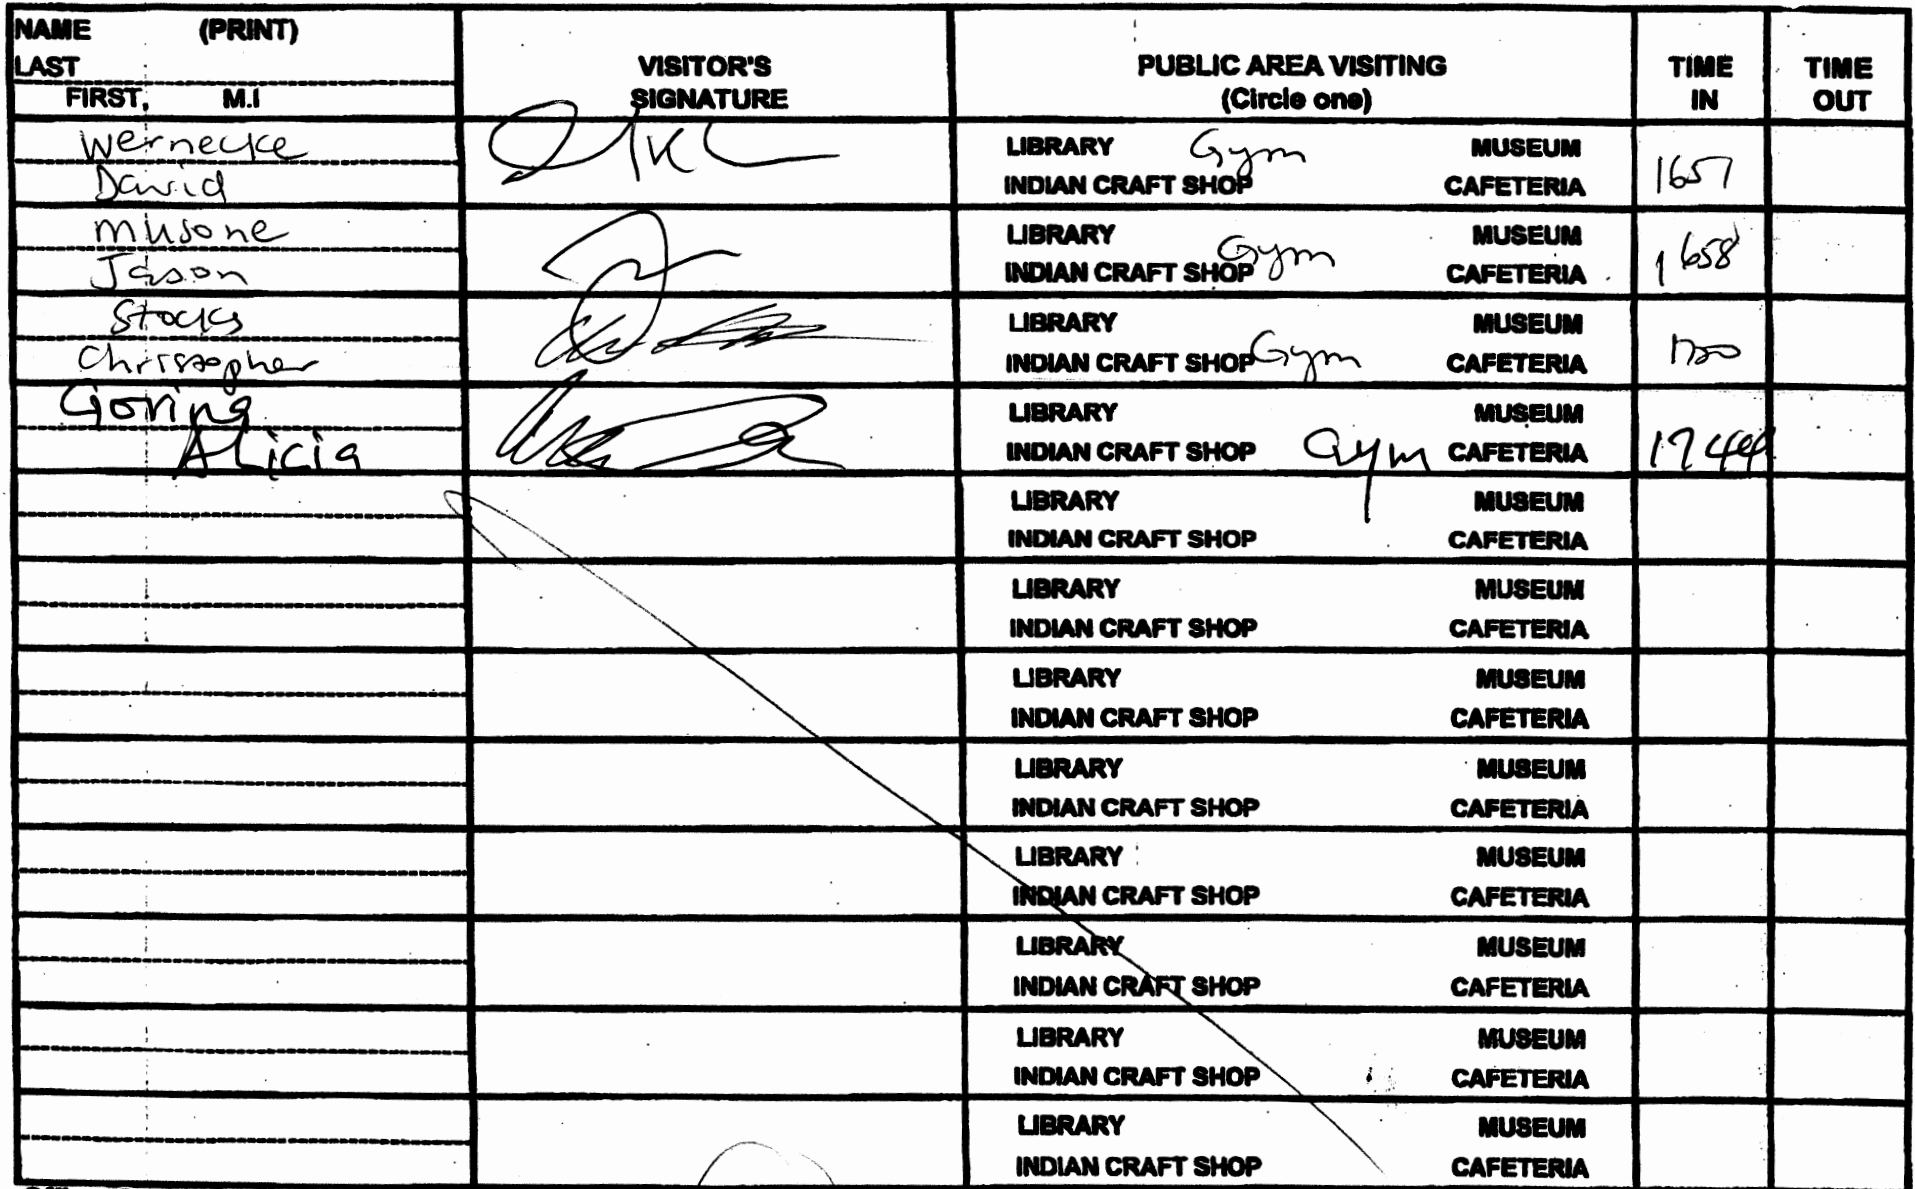 NAME (PRINT)
LAST
FIRST, M.I
VISITOR'S
SIGNATURE
PUBLIC AREA VISITING
(Circle one)
TIME
IN
TIME
OUT
Wernecke
David
LIBRARY Gym MUSEUM
INDIAN CRAFT SHOP CAFETERIA
1657
Musone
Jason
LIBRARY MUSEUM
INDIAN CRAFT SHOP Gym CAFETERIA
1658
Stocks
Christopher
LIBRARY MUSEUM
INDIAN CRAFT SHOP Gym CAFETERIA
1700
Goring
Alicia
LIBRARY MUSEUM
INDIAN CRAFT SHOP Gym CAFETERIA
LIBRARY MUSEUM
INDIAN CRAFT SHOP CAFETERIA
LIBRARY MUSEUM
INDIAN CRAFT SHOP CAFETERIA
LIBRARY MUSEUM
INDIAN CRAFT SHOP CAFETERIA
LIBRARY MUSEUM
INDIAN CRAFT SHOP CAFETERIA
LIBRARY MUSEUM
INDIAN CRAFT SHOP CAFETERIA
LIBRARY MUSEUM
INDIAN CRAFT SHOP CAFETERIA
LIBRARY MUSEUM
INDIAN CRAFT SHOP CAFETERIA
LIBRARY MUSEUM
INDIAN CRAFT SHOP CAFETERIA